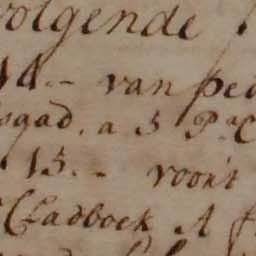 volgende
14.- van ped
sgad. a 5 P.r C
15.- voor't
Cladboek A f